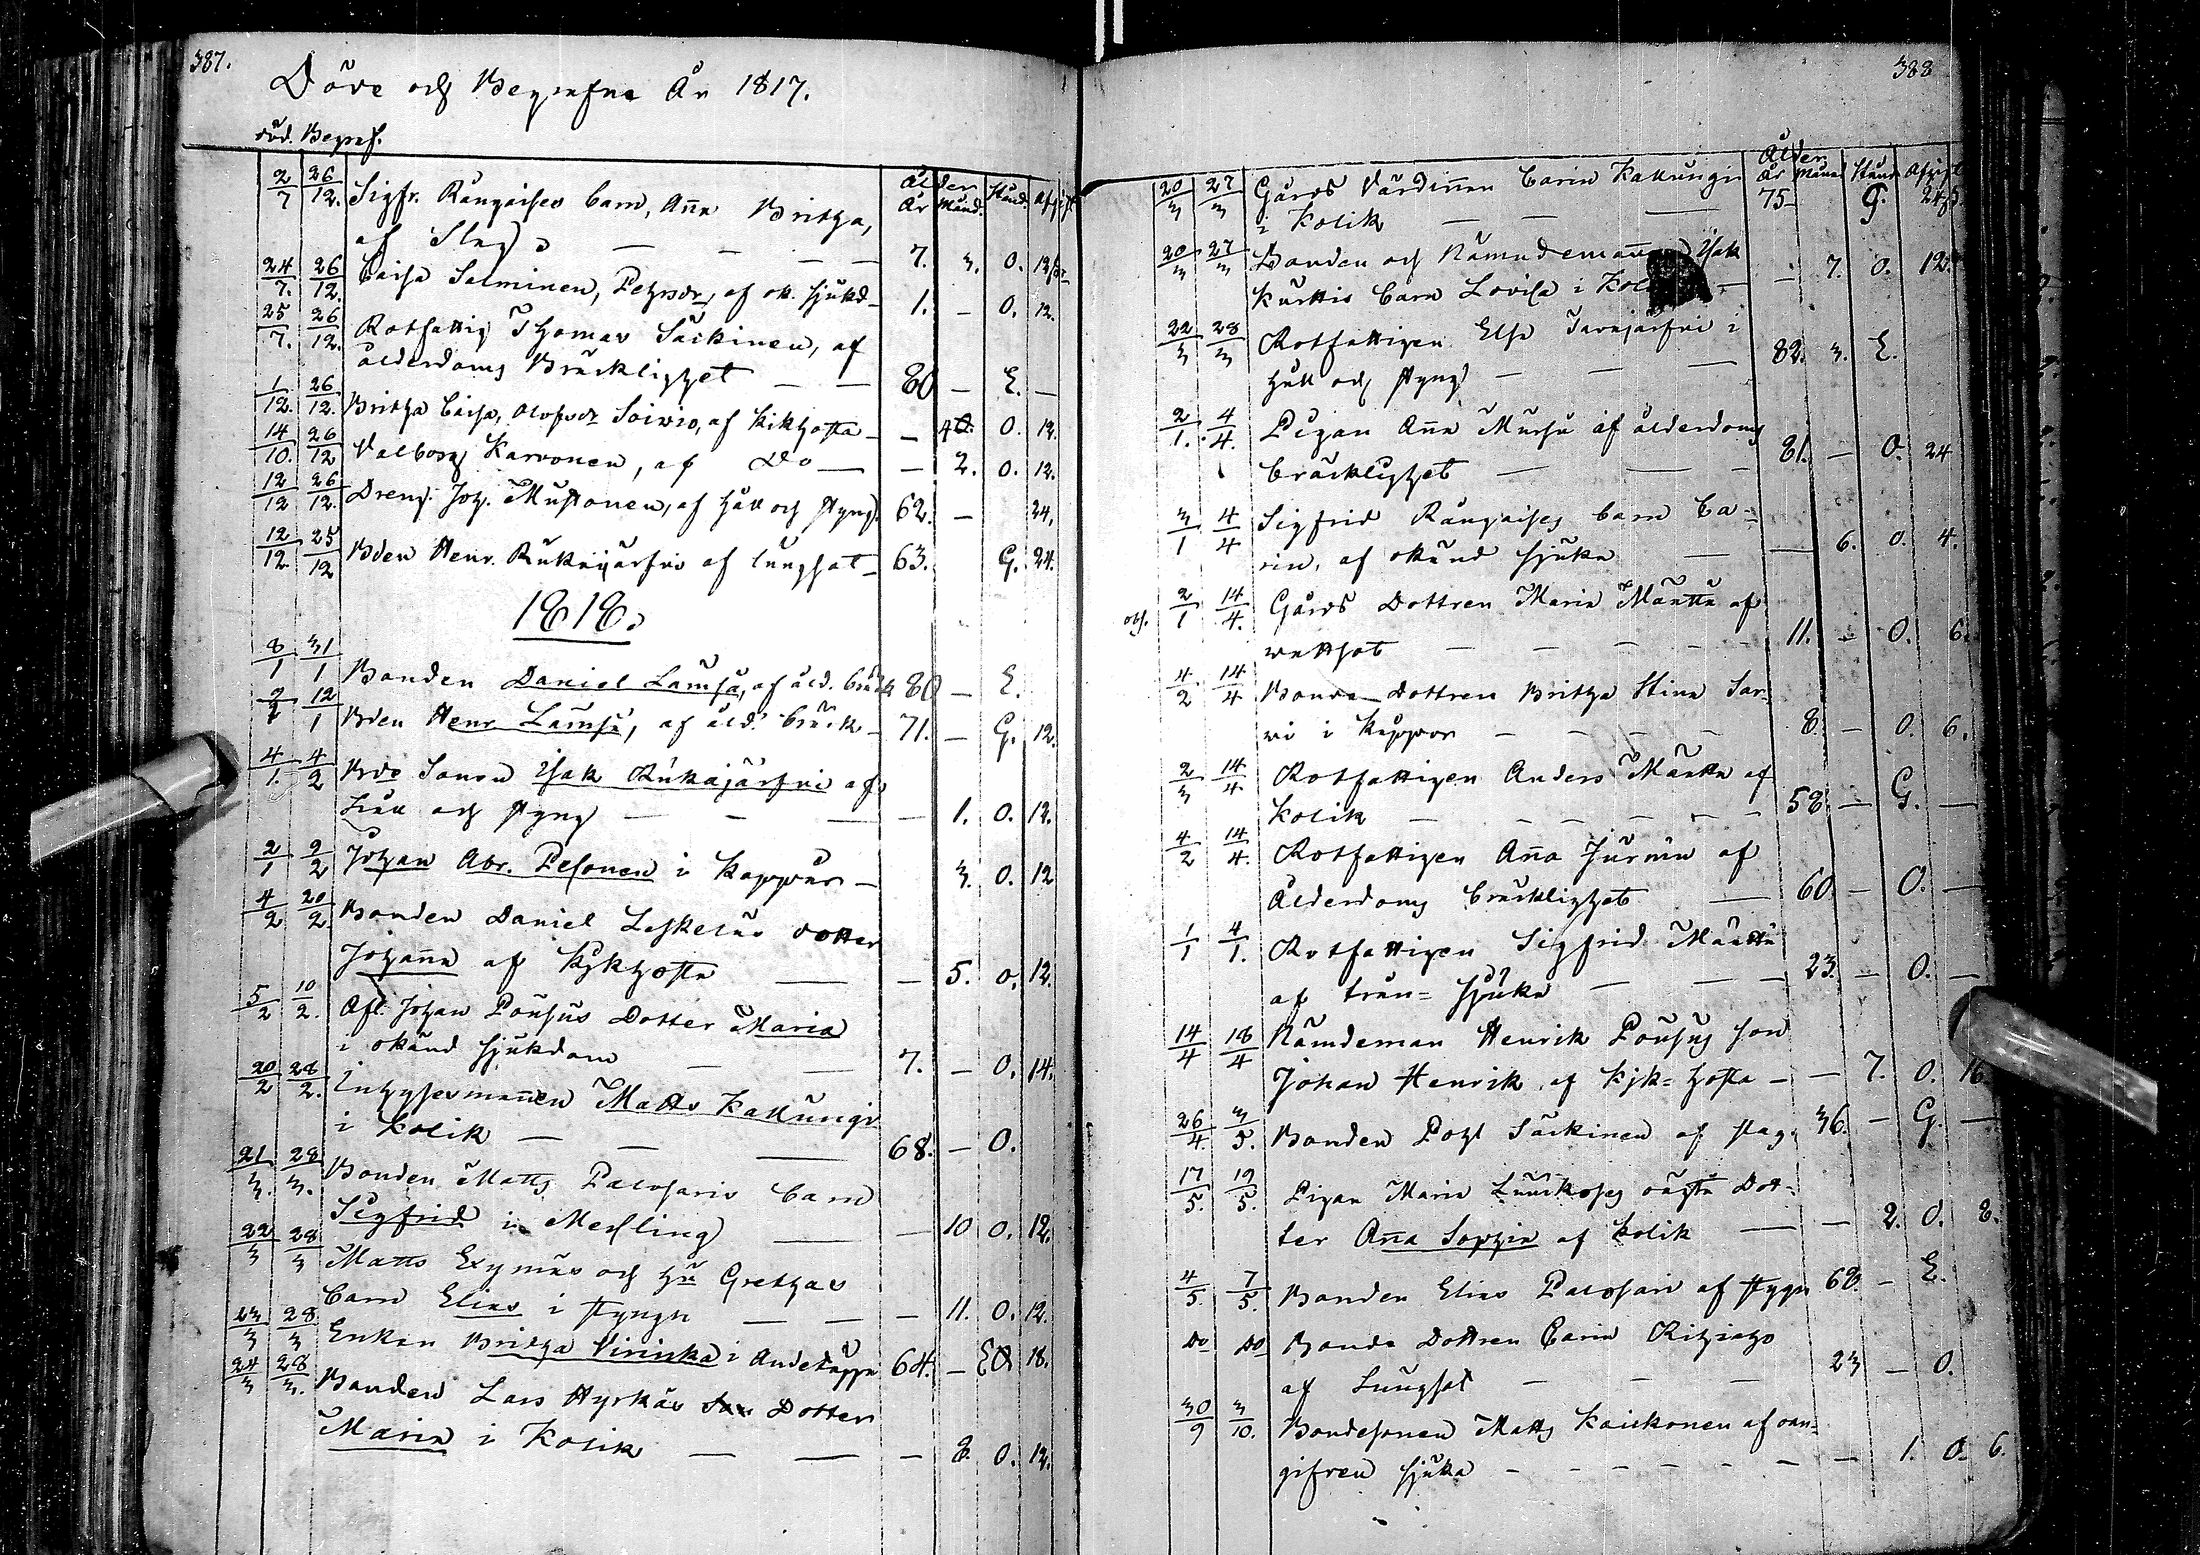 387.
Döde och Begrafne År 1817.
död. Begraf.
Ålder
År Månd. Stånd. Afgift
2/7 26/12. Sigfr. Rångaises barn, Anna Britha,
af Slag) 7. 3. O. 12
24/7. 26/12. Caisa Salminen, Petersdr, af ok. sjukd 1. — O. 12.
25/7. 26/12. Rotfattig Thomas Säckinen, af
ålderdoms Bräcklighet — — 80 — E. —
1/12. 26/12. Britha Caisa, Olofsdr Soiwio, af Kikhosta — — 4 O. 12.
14/10. 26/12 Valborg Karvonen, af Do — — 2. O. 12.
12/12 26/12. Dreng. Joh. Mustonen, af håll och styng. 62. — 24.
12/12 25/12 Bden Henr. Rukajärfvi af lungsot — 63. G. 24.
1818.
8/1 31/1 Bonden Daniel Lämsä, af åld. bräck 80 — E.
12/1 Bden Henr Lämsä, af åld. bräck — 71. — G. 12.
4/1. 4/2 Bde Sonen Isak Rukajärfvi af
håll och styng — — — — 1. O. 12.
2/1 9/2 Johan Abr. Pesonen i Koppår — 3. O. 12
4/2 20/2. Bonden Daniel Leskeläs dotter
Johanna af Kjkhosta — — 5. O. 12.
5/2 10/2. Afl. Johan Pousus Dotter Maria
i okänd sjukdom — — 7. — O. 14.
20/2 28/2. Inhysesmannen Matts Kallungi
i Kolik — — — 68. — O.
21/3. 28/3. Bonden Matts Palosaris barn
Sigfrid i Messling — — 10 O. 12.
22/3 28/3 Matts och hu Grethas
barn Elias i styng — — — 11. O. 12.
23/3 28/3 Enkan Britha i Andetäppa 64. — E 18.
24/3 28/3. Bonden Lars Hyrkäs Dotter
Maria i Kolik — — — 8. O. 12.
388
Ålder
År Månd Stånd Afgift
20/3 27/3 Gårds Värdinnan Carin Kallungi
i Kolik — — — 75 — G. 24
20/3 27/3 Bonden och Nämndemannen Isak
Kurttis barn Lovisa i — — 7. O. 12.
22/3 28/3 Rotfattigen Elsa Tavajärfvi i
håll och styng — — — 82. 3. E.
2/1. 4/4. Pigan Anna Mursu af ålderdoms
bräcklighet — — — 81. — O. 24
3/1 4/4 Sigfrid Rångaises barn Ca-
rin, af okänd sjuka — — 6. O. 4.
obs. 2/1 14/4. Gårds Dottren Maria Määttä af
wattsot — — — — 11. — O. 6.
4/2 14/4 Bonde Dottren Britha Stina Sar-
vi i Koppor — — — — 8. — O. 6.
2/3 14/4. Rotfattigen Anders Määttä af
Kolik — — — — — 58 — G. —
4/2 14/4. Rotfattigen Anna Jurmu af
Ålderdoms bräcklighet — 60 — O. —
1/1 4/1. Rotfattigen Sigfrid Määttä
af trån= sjuka — — — 23. — O. —
14/4 18/4 Nämdeman Henrik Pousus son
Johan Henrik af Kjk=hosta — — 7. O. 16
26/4. 3/5. Bonden Pohl Säckinen af slag. 36. — G. —
17/5. 19/5. Pigan Maria oägta Dot-
ter Anna Sophia af Kolik — — 2. O. 8.
4/5. 7/5. Bonden Elias Palosari af styng 68. — E.
Do Do Bonde Dottren Carin Rihiaho
af Lungsot — — — 23 — O.
30/9 3/10. Bondesonen Matts Kaickonen af oan-
gifven sjuka — — — — — — — 1. O. 6.